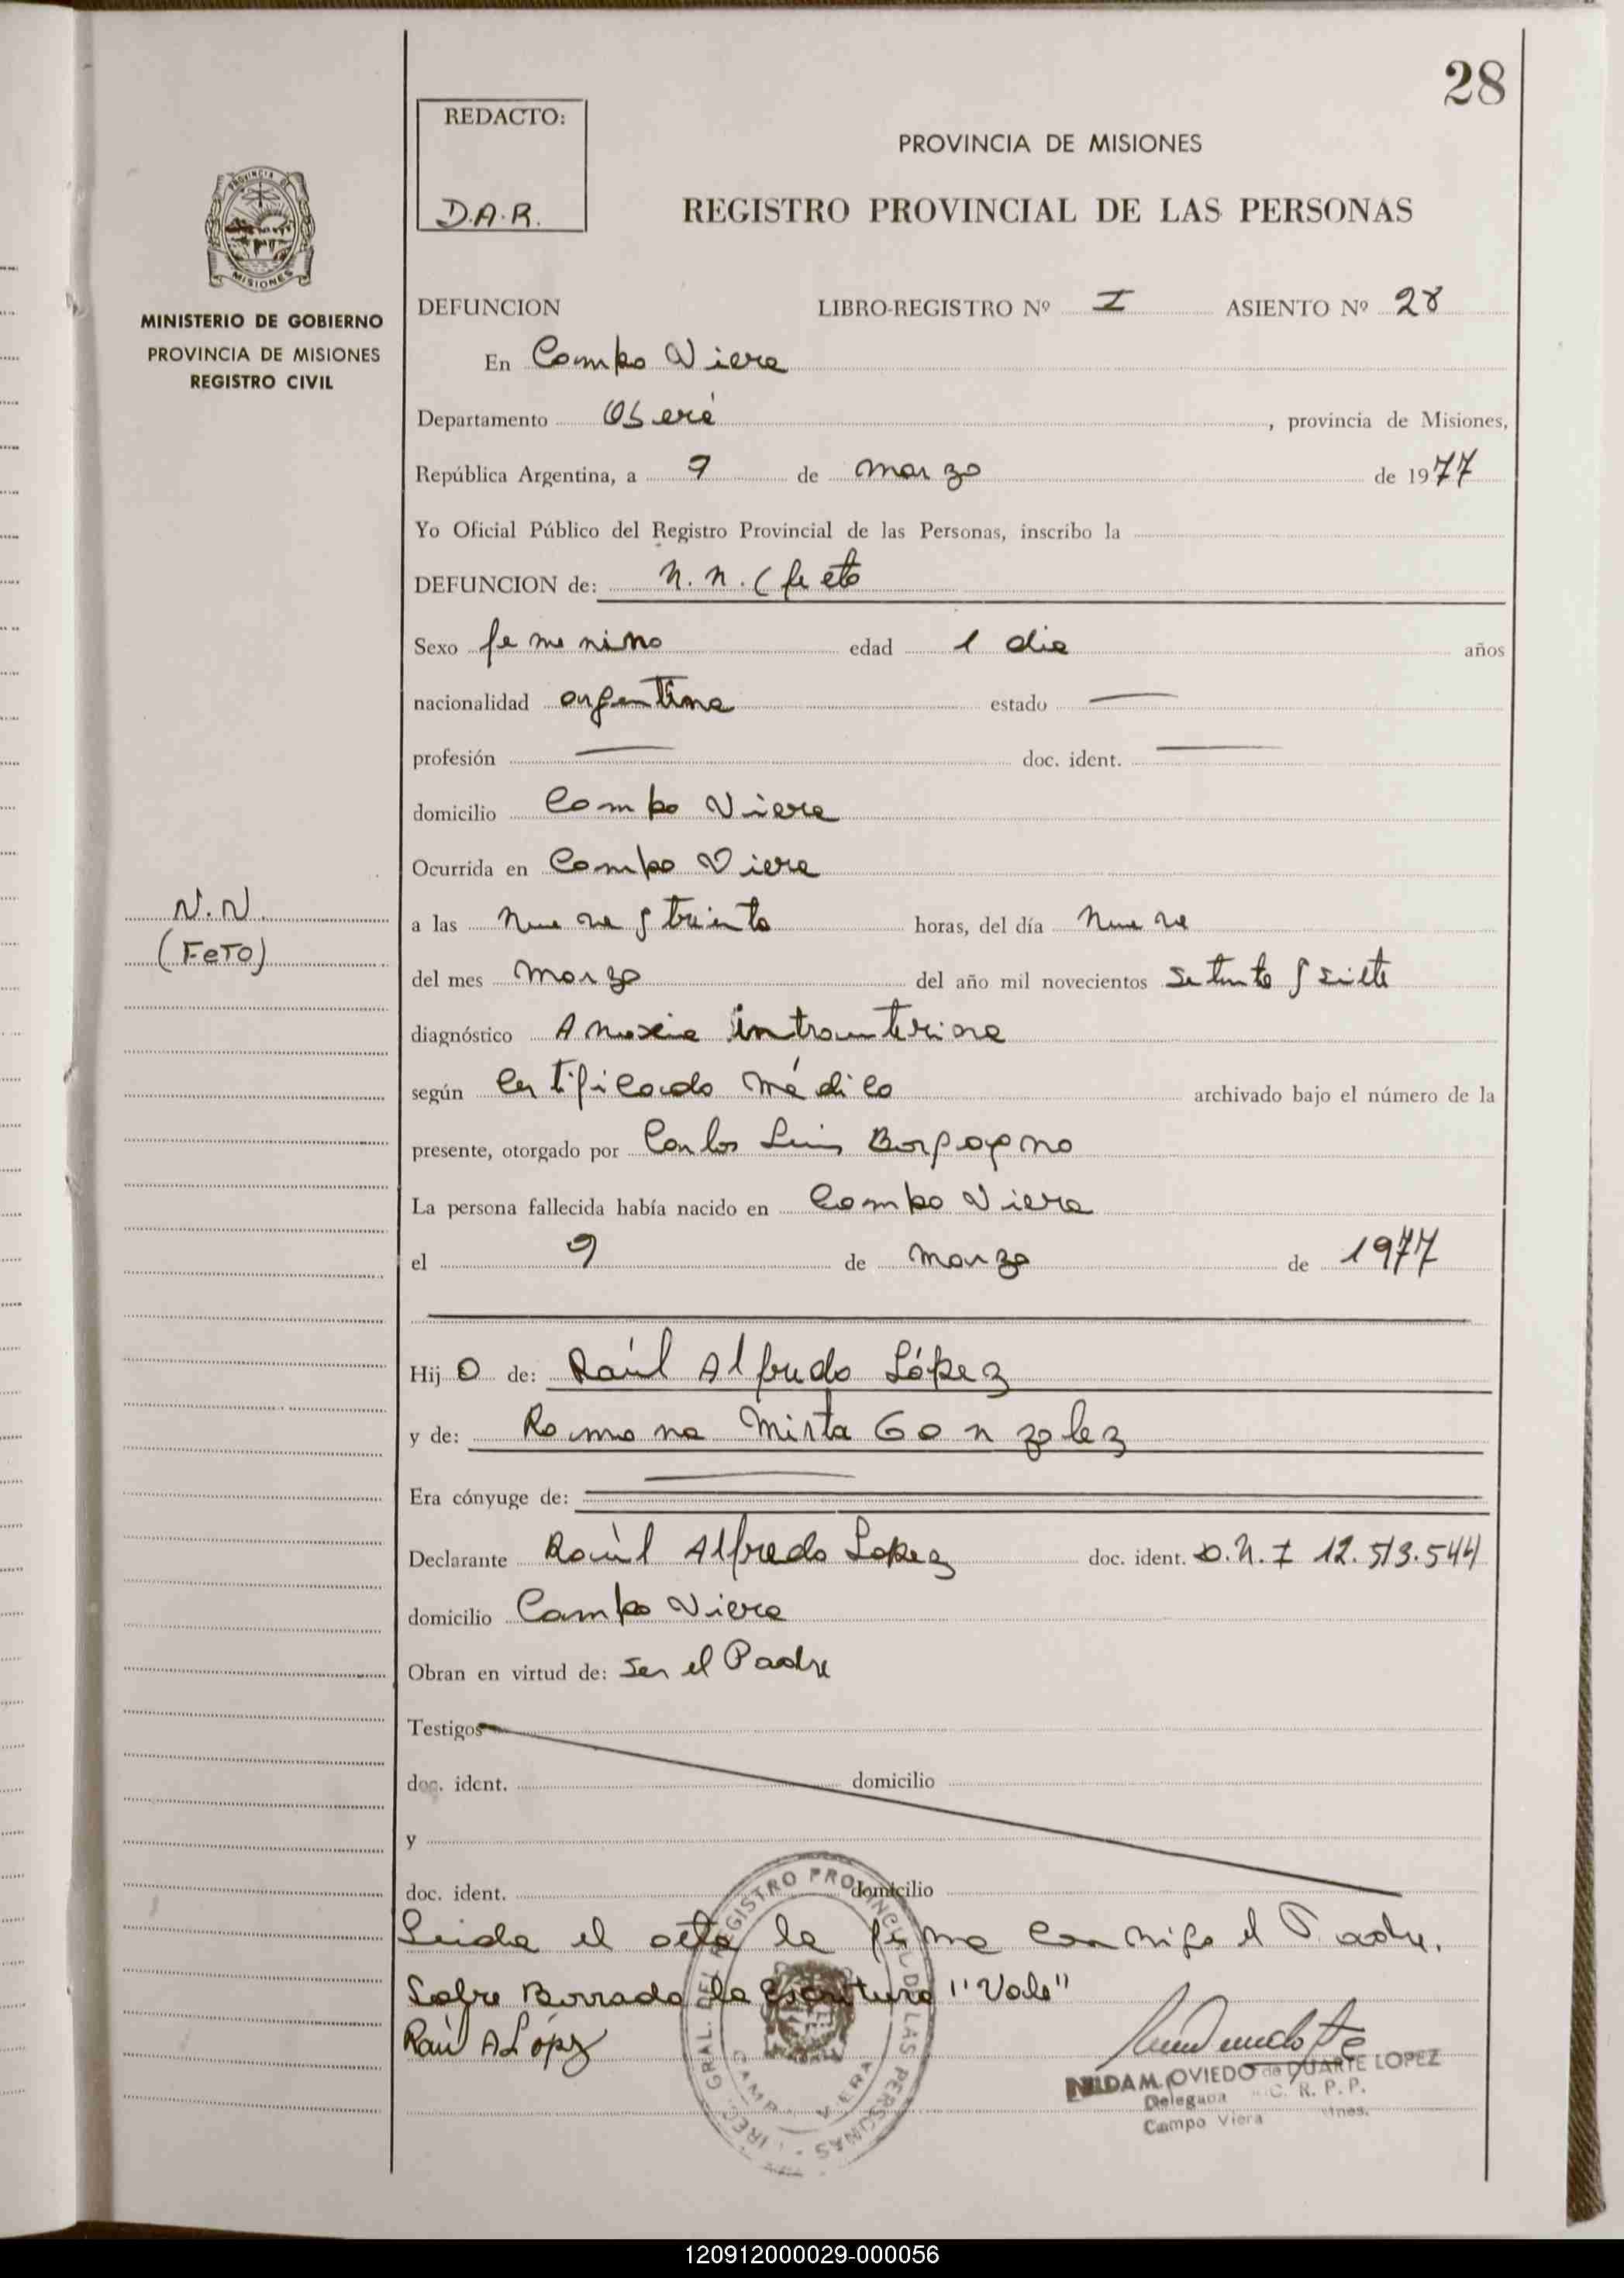 28
REDACTO:
D.A.R.
PROVINCIA DE MISIONES
REGISTRO PROVINCIAL DE LAS PERSONAS
PROVINCIA DE
MISIONES
MINISTERIO DE GOBIERNO
PROVINCIA DE MISIONES
REGISTRO CIVIL
DEFUNCION LIBRO-REGISTRO Nº I ASIENTO Nº 28
En Campo Viera
Departamento Oberá, provincia de Misiones,
República Argentina, a 9 de marzo de 1977
Yo Oficial Público del Registro Provincial de las Personas, inscribo la
DEFUNCION de: N.N. (feto
Sexo femenino edad 1 dia años
nacionalidad argentina estado —
profesión — doc. ident. —
domicilio Campo Viera
Ocurrida en Campo Viera
N.N.
(FETO)
a las nueve y treinta horas, del día nueve
del mes marzo del año mil novecientos setenta y siete
diagnóstico Anoxia intrauterina
según certificado médico archivado bajo el número de la
presente, otorgado por Carlos Luis
La persona fallecida había nacido en Campo Viera
el 9 de marzo de 1977
Hij o de: Raúl Alfredo López
y de: Ramona Mirta Gonzalez
Era cónyuge de: —
Declarante Raúl Alfredo Lopez doc. ident. D.N.I 12.513.544
domicilio Campo Viera
Obran en virtud de: Ser el Padre
Testigos
doc. ident. domicilio
y
doc. ident. domicilio
Leida el acta la firma conmigo el Padre.
Sobre Borrado la Escritura "Vale"
Raúl A López
NILDA M. OVIEDO de DUARTE LOPEZ
Delegada C. R. P. P.
Campo Viera Mnes.
DIREC. GRAL. DEL REGISTRO PROVINCIAL DE LAS PERSONAS
CAMPO VIERA
120912000029-000056